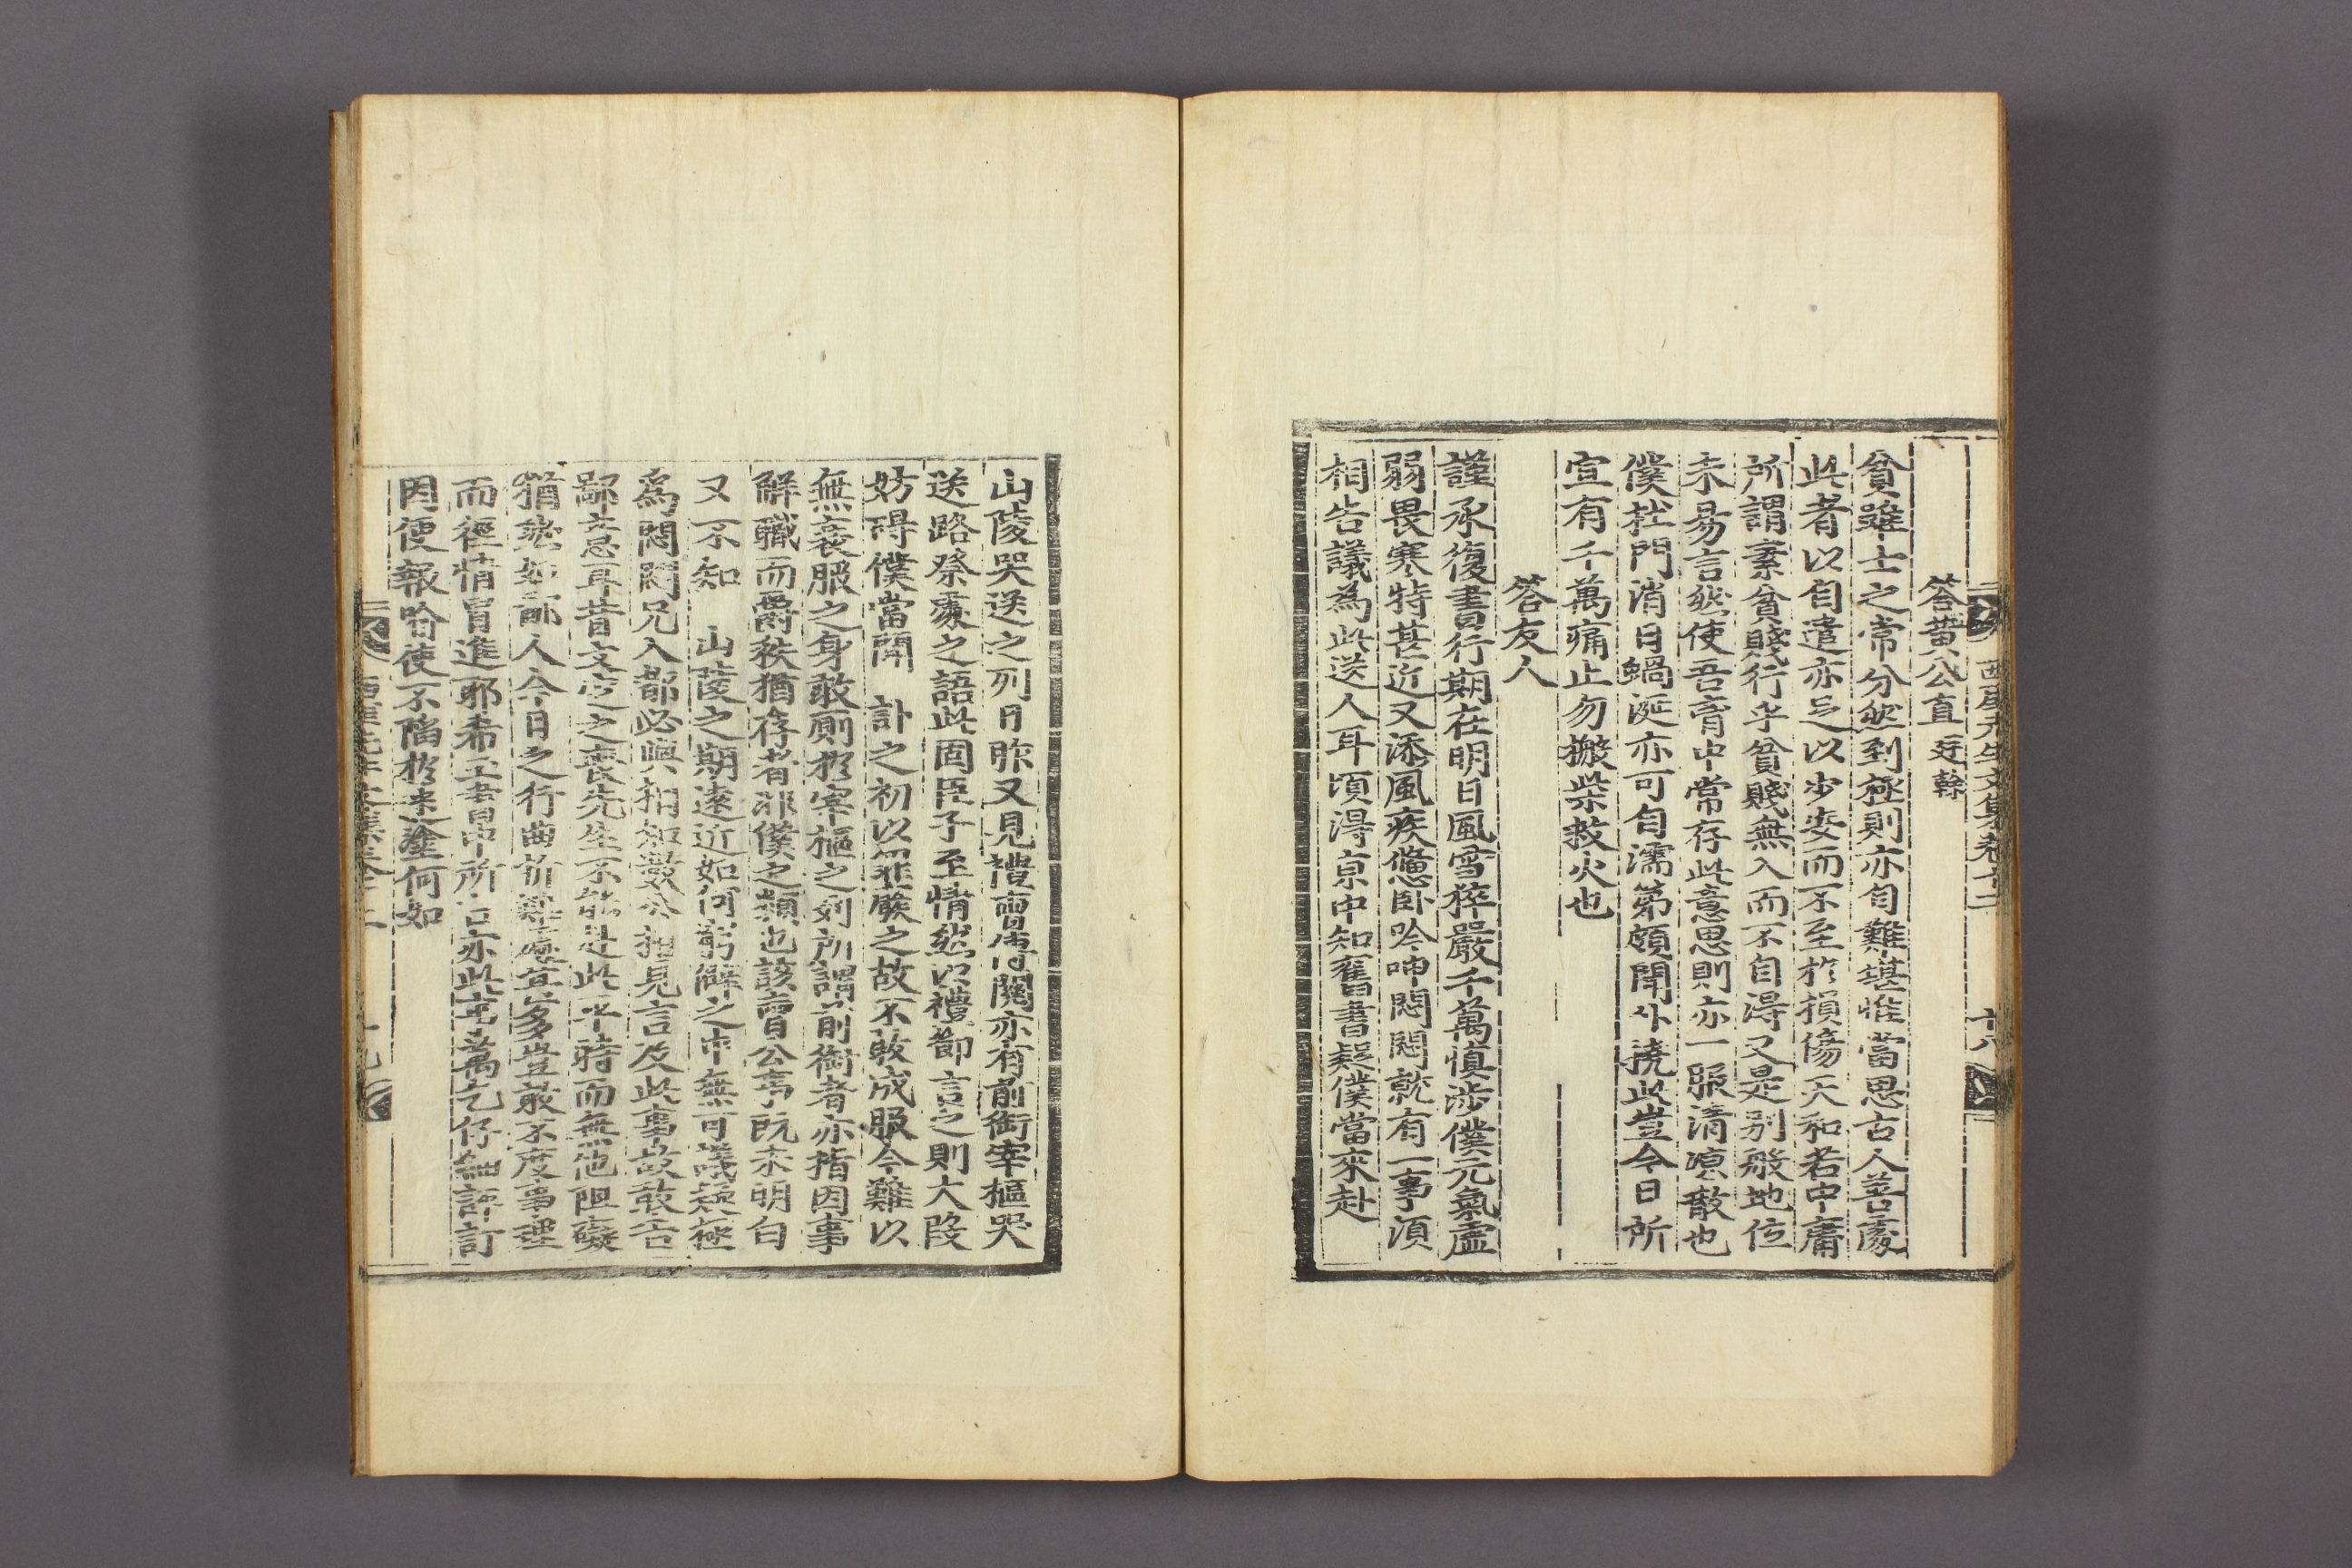 西厓先生文集卷十二 十八
答黃公直廷榦
貧雖士之常分然到極則亦自難堪惟當思古人善處
此者以自遣亦足以少安而不至於損傷天和若中庸
所謂素貧賤行乎貧賤無入而不自得又是別般地位
未易言然使吾胷中常存此意思則亦一服淸凉散也
僕杜門消日蝸涎亦可自濡第頗聞外撓此豈今日所
宜有千萬痛止勿搬柴救火也
答友人
謹承復書行期在明日風雪猝嚴千萬愼涉僕元氣虛
弱畏寒特甚近又添風疾憊臥吟呻悶悶就有一事須
相告議爲此送人耳頃得京中知舊書疑僕當來赴
山陵哭送之列日昨又見禮曹傳關亦有前銜宰樞哭
送路祭處之語此固臣子至情然以禮節言之則大段
妨碍僕當聞 訃之初以罪廢之故不敢成服今難以
無衰服之身敢廁於宰樞之列所謂前銜者亦指因事
解職而爵秩猶存者非僕之類也該曹公事旣未明白
又不知 山陵之期遠近如何窮僻之中無可議疑極
爲悶悶兄入都必與相知數公相見言及此事故敢告
鄙意耳昔文定之喪先生不能赴此平時而無他阻礙
猶然如 人今日之行曲折難處宜多豈敢不度事理
而徑情冒進耶希玉書中所言亦此 萬乞仔細評訂
因便報 使不陷於迷塗何如
西厓先生文集卷十二 十九